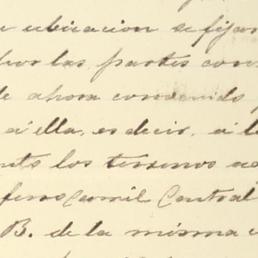 ubicacion se fijar
por las partes con
de ahora convenido
a ella, es decir, á l
los terrenos
ferrocarril Central
B. de la misma